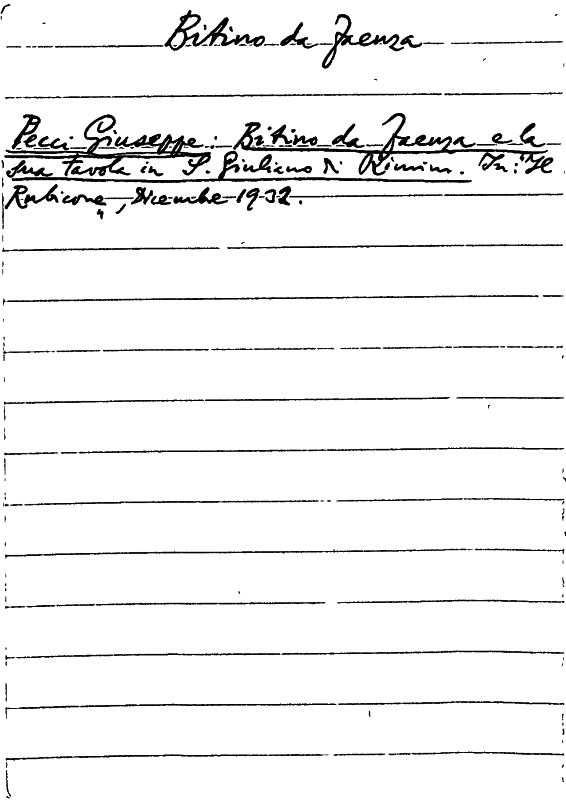 Bitino da Faenza
Pecci Giuseppe: Bitino da Faenza e la
sua tavola in S. Giuliano di Rimini. In: "Il
Rubicone", Dicembre 1932.